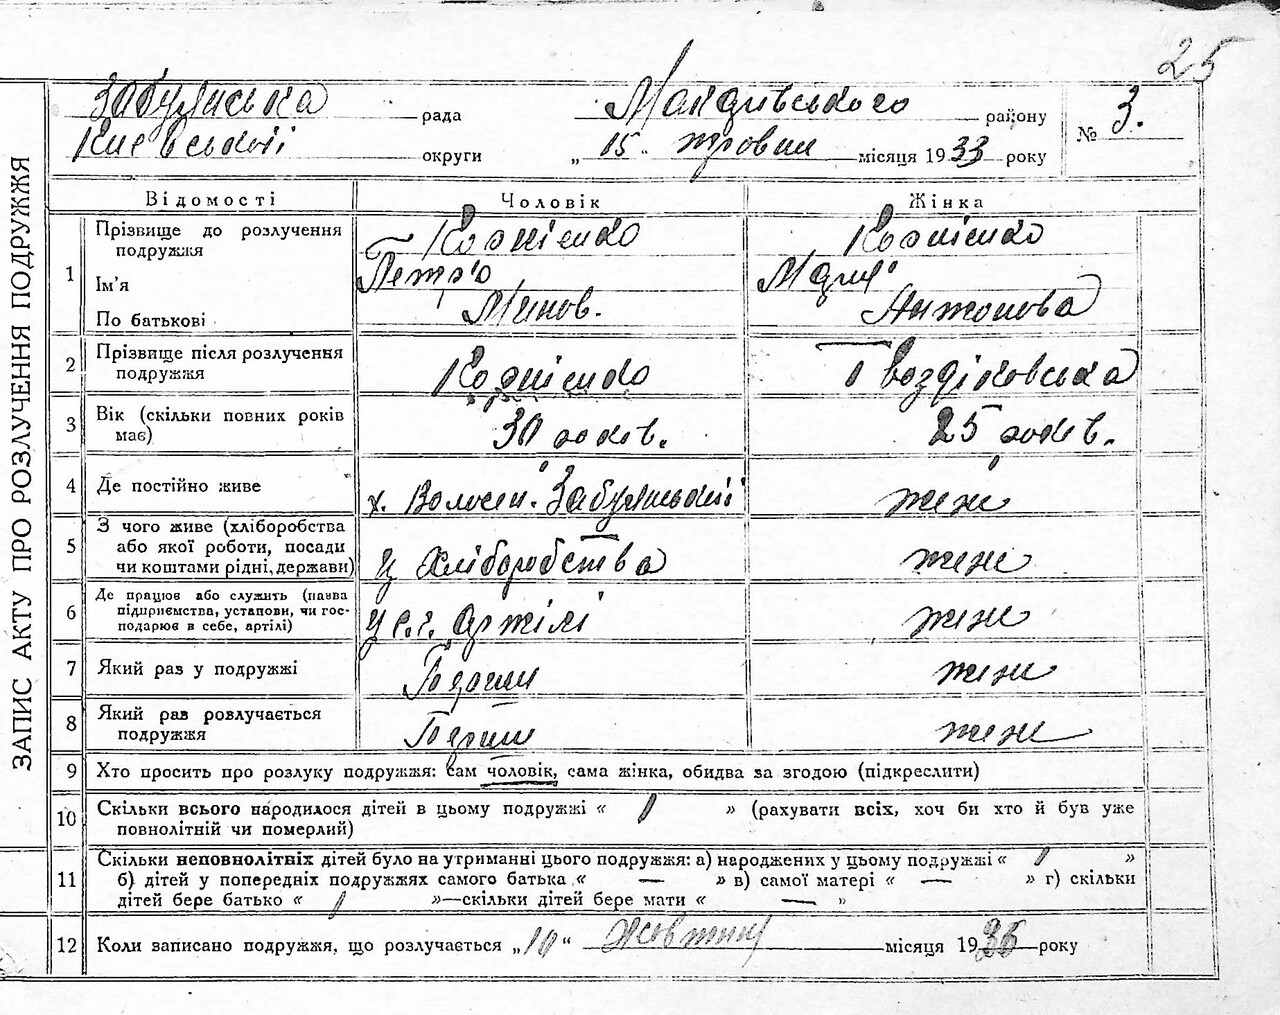 25
Забуянська рада Макарівського району
№ 3.
Київської округи „ 15 " травня місяця 1933 року
ЗАПИС АКТУ ПРО РОЗЛУЧЕННЯ ПОДРУЖЖЯ
Відомості Чоловік Жінка
1 Прізвище до розлучення
подружжя
Ім'я Петро
По батькові Антонова
2 Прізвище після розлучення Гвоздіковська
подружжя
3 Вік (скільки повних років 30 років. 25 років.
має)
4 Де постійно живе х. Забуянської
5 З чого живе (хліборобства
або якої роботи, посади
чи коштами рідні, держави) Хліборобства
6 Де працює або служить (назва
підприємства, установи, чи гос-
подарює в себе, артілі) у с.г. артілі
7 Який раз у подружжі
8 Який раз розлучається
подружжя
9 Хто просить про розлуку подружжя: сам чоловік, сама жінка, обидва за згодою (підкреслити)
10 Скільки всього народилося дітей в цьому подружжі « 1 » (рахувати всіх, хоч би хто й був уже
повнолітній чи померлий)
11 Скільки неповнолітніх дітей було на утриманні цього подружжя: а) народжених у цьому подружжі « 1 »
б) дітей у попередніх подружжях самого батька « — » в) самої матері « — » г) скільки
дітей бере батько « 1 »—скільки дітей бере мати « — »
12 Коли записано подружжя, що розлучається „ 10 " жовтня місяця 19 року